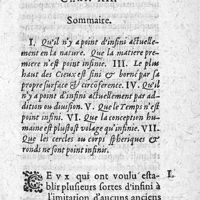 Sommaire.
I. Qu'il n'y a point d'infini actuelle-
ment en la nature. Que la matiere pre-
miere n'est point infinie. III. Le plus
haut des Cieux est fini & borné par sa
propre surface & circoference. IV. Qu'il
n'y a point d'infini actuellement par ad-
dition ou division. V. Que le Temps n'est
point infini. VI. Que la conception hu-
maine est plustost volage qu'infinie. VII.
Que les cercles ou corps spheriques &
ronds ne sont point infinis.
CEVX qui ont voulu esta- I.
blir plusieurs sortes d'infini à
l'imitation d'aucuns anciens